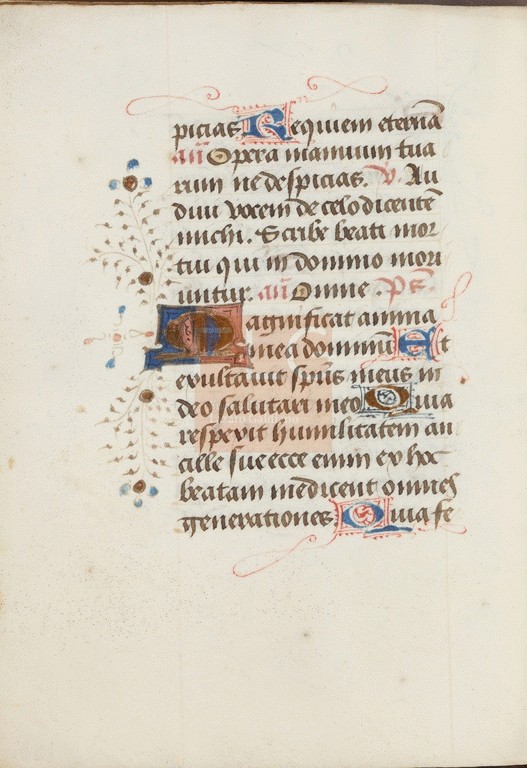 picias Requiem eternā
añ Opera manuum tua
rum ne despicias. V. Au
diui vocem de celo dicentē
michi. Scribe beati mor
tui qui in domino mori
untur. añ Omne. Ps̄.
Magnificat anima
mea dominū Et
exultauit sp̄us meus in
deo salutari meo Quia
respexit humilitatem an
cille sue ecce enim ex hoc
beatam me dicent omnes
generationes Quia fe